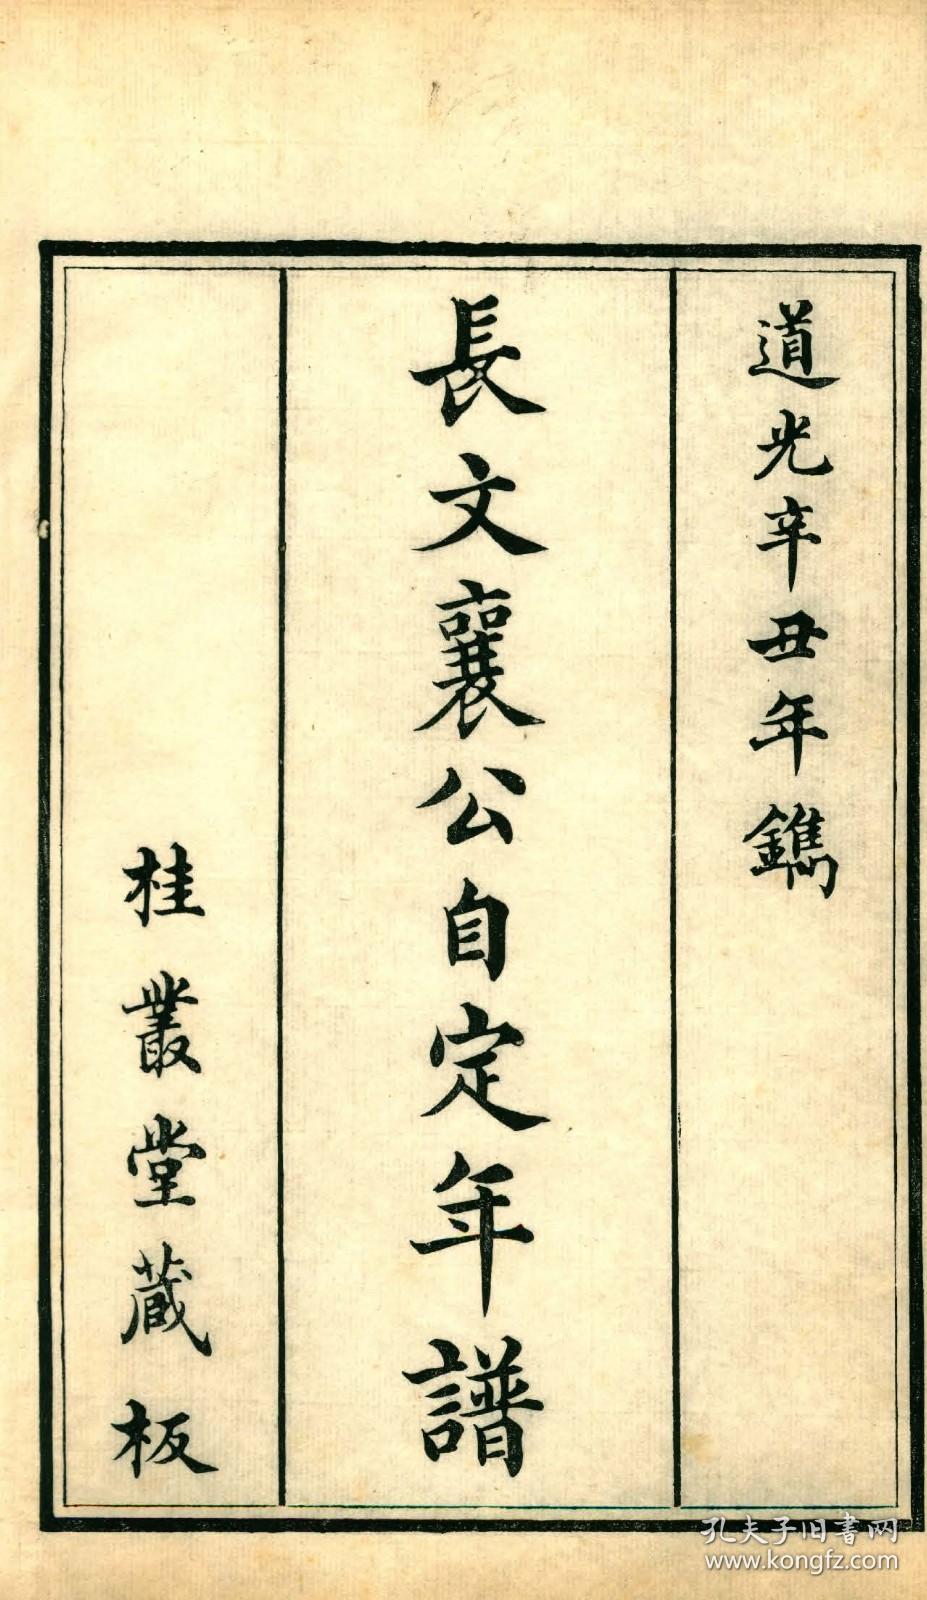 道光辛丑年鐫
長文襄公自定年譜
桂叢堂蔵板
孔夫子旧书网
www.kongfz.com